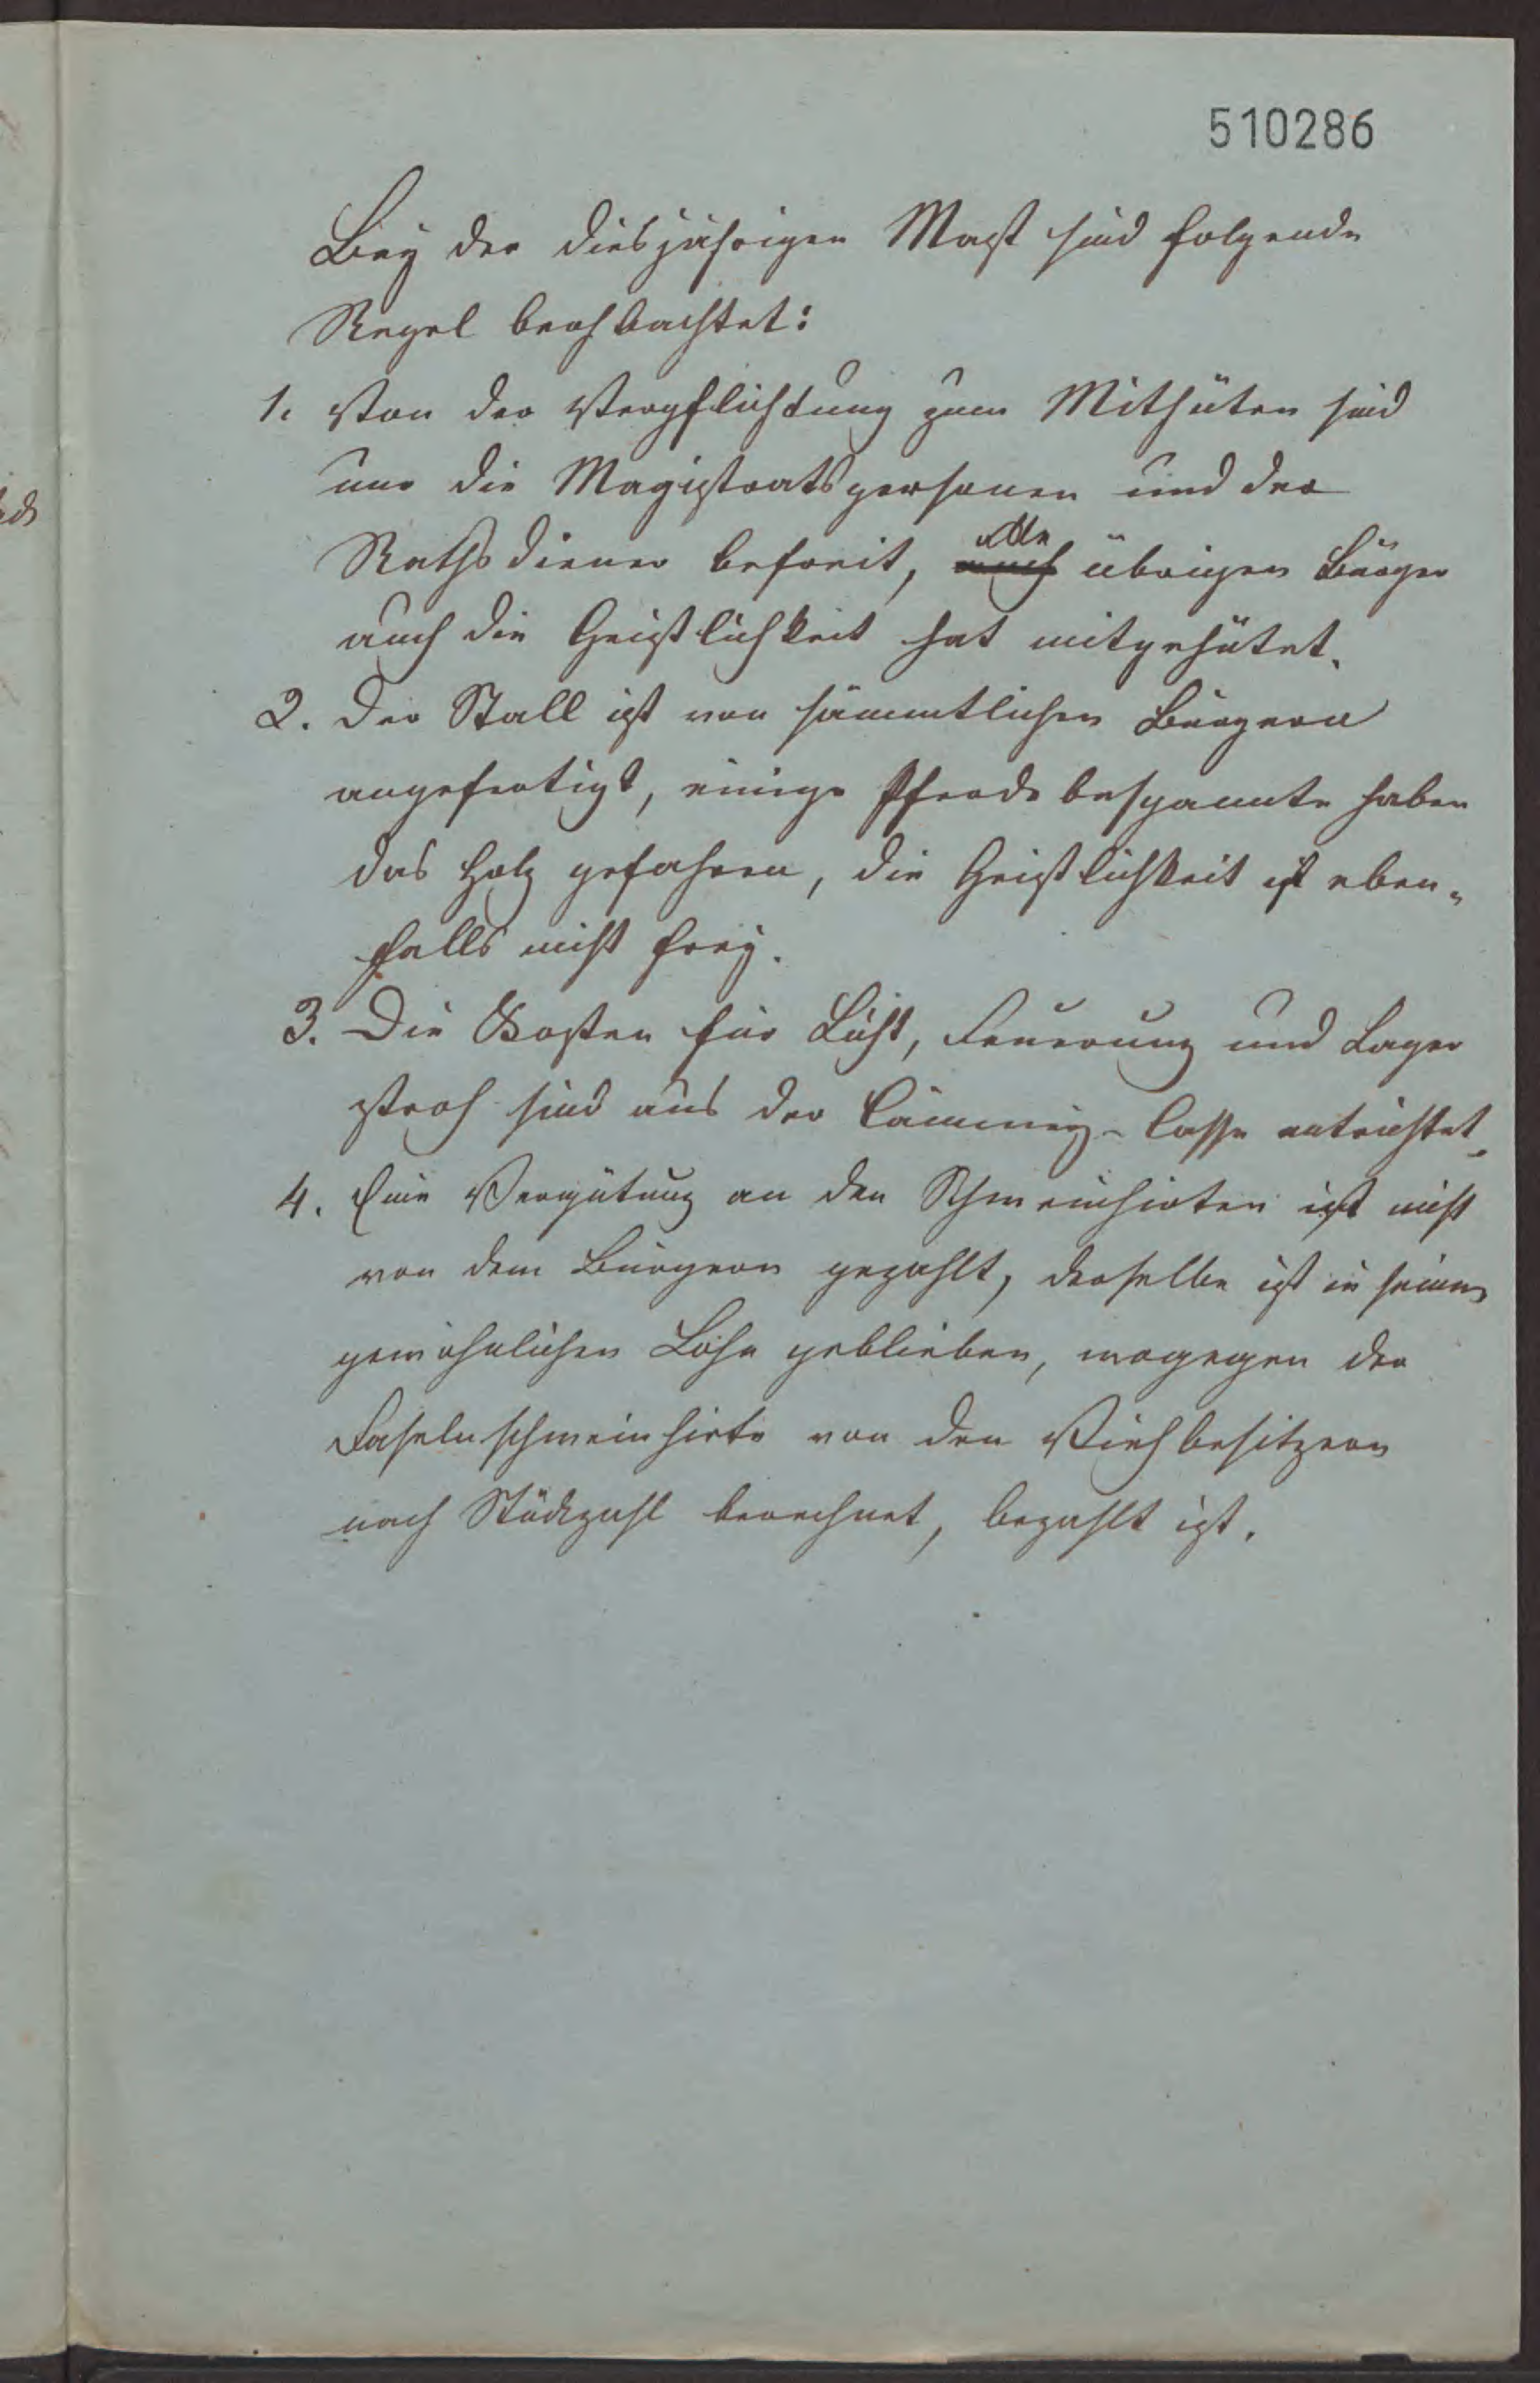 510286
Bey der diesjährigen Mast sind folgende
Regel beobachtet:
1. Von der Verpflichtung zum Mithüten sind
nur die Magistratspersonen und der
Rathsdiener befreit, alle übrigen Bürger
auch die Geistlichkeit hat mitgehütet.
2. Der Stall ist von sämmtlichen Bürgern
angefertigt, einige Pferde bespannte haben
das Holz gefahren, die Geistlichkeit ist eben„
falls nicht frey.
3. Die Kosten für Licht, Feuerung und Lager
stroh sind aus der Cämmrey-Casse entrichtet.
4. Eine Vergütung an den Schweinhirten ist nicht
von dem Bürgern gezahlt, derselbe ist in seinem
gewöhnlichen Lohn geblieben, wogegen der
Faselnschweinhirte von den Viehbesitzern
nach Stückzahl berechnet, bezahlt ist.